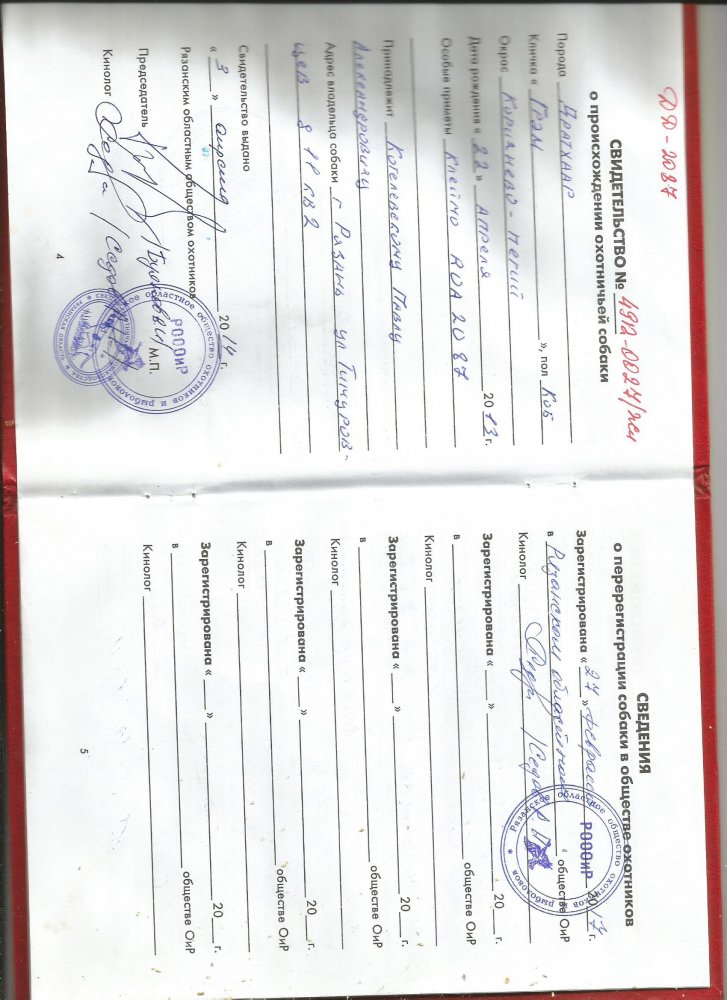 ДД-2087
СВИДЕТЕЛЬСТВО № 4912-0027/ясл
о происхождении охотничьей собаки
Порода Дратхаар
Кличка « Грэм », пол Коб
Окрас Коричнево-пегий
Дата рождения « 22 » Апреля 2013 г.
Особые приметы Клеймо RUA 2087
Принадлежит Котелевскому Павлу
Александровичу
Адрес владельца собаки г Рязань ул Тимуров-
цев 8 1Р КВ 2
Свидетельство выдано
« 3 » апреля 2014 г.
Рязанским областным обществом охотников
Председатель
М.П.
Кинолог /Седова
РОООиР
Рязанское областное общество охотников и рыболовов
4
СВЕДЕНИЯ
о перерегистрации собаки в обществе охотников
Зарегистрирована « 27 » февраля 2017 г.
в Рязанском областном обществе ОиР
Кинолог /Седова
РОООиР
Рязанское областное общество охотников и рыболовов
Зарегистрирована « » 20 г.
в обществе ОиР
Кинолог
Зарегистрирована « » 20 г.
в обществе ОиР
Кинолог
Зарегистрирована « » 20 г.
в обществе ОиР
Кинолог
Зарегистрирована « » 20 г.
в обществе ОиР
Кинолог
5